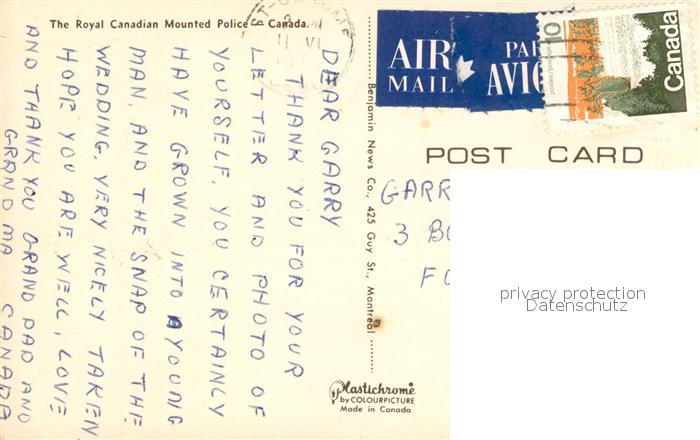 The Royal Canadian Mounted Police - Canada.
DEAR GARRY
THANK YOU FOR YOUR
LETTER AND PHOTO OF
YOURSELF, YOU CERTAINLY
HAVE GROWN INTO A YOUNG
MAN, AND THE SNAP OF THE
WEDDING, VERY NICELY TAKEN
HOPE YOU ARE WELL, LOVE
AND THANK YOU GRAND DAD AND
GRAND MA CANADA
Benjamin News Co., 425 Guy St., Montreal
Plastichrome
by COLOURPICTURE
Made in Canada
AIR MAIL
PAR AVION
10
Canada
POST CARD
GARR
3 BO
FO
privacy protection
Datenschutz